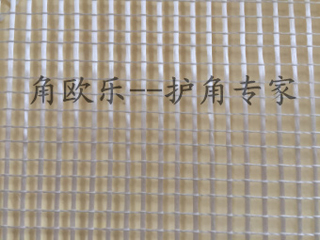 角欧乐--护角专家